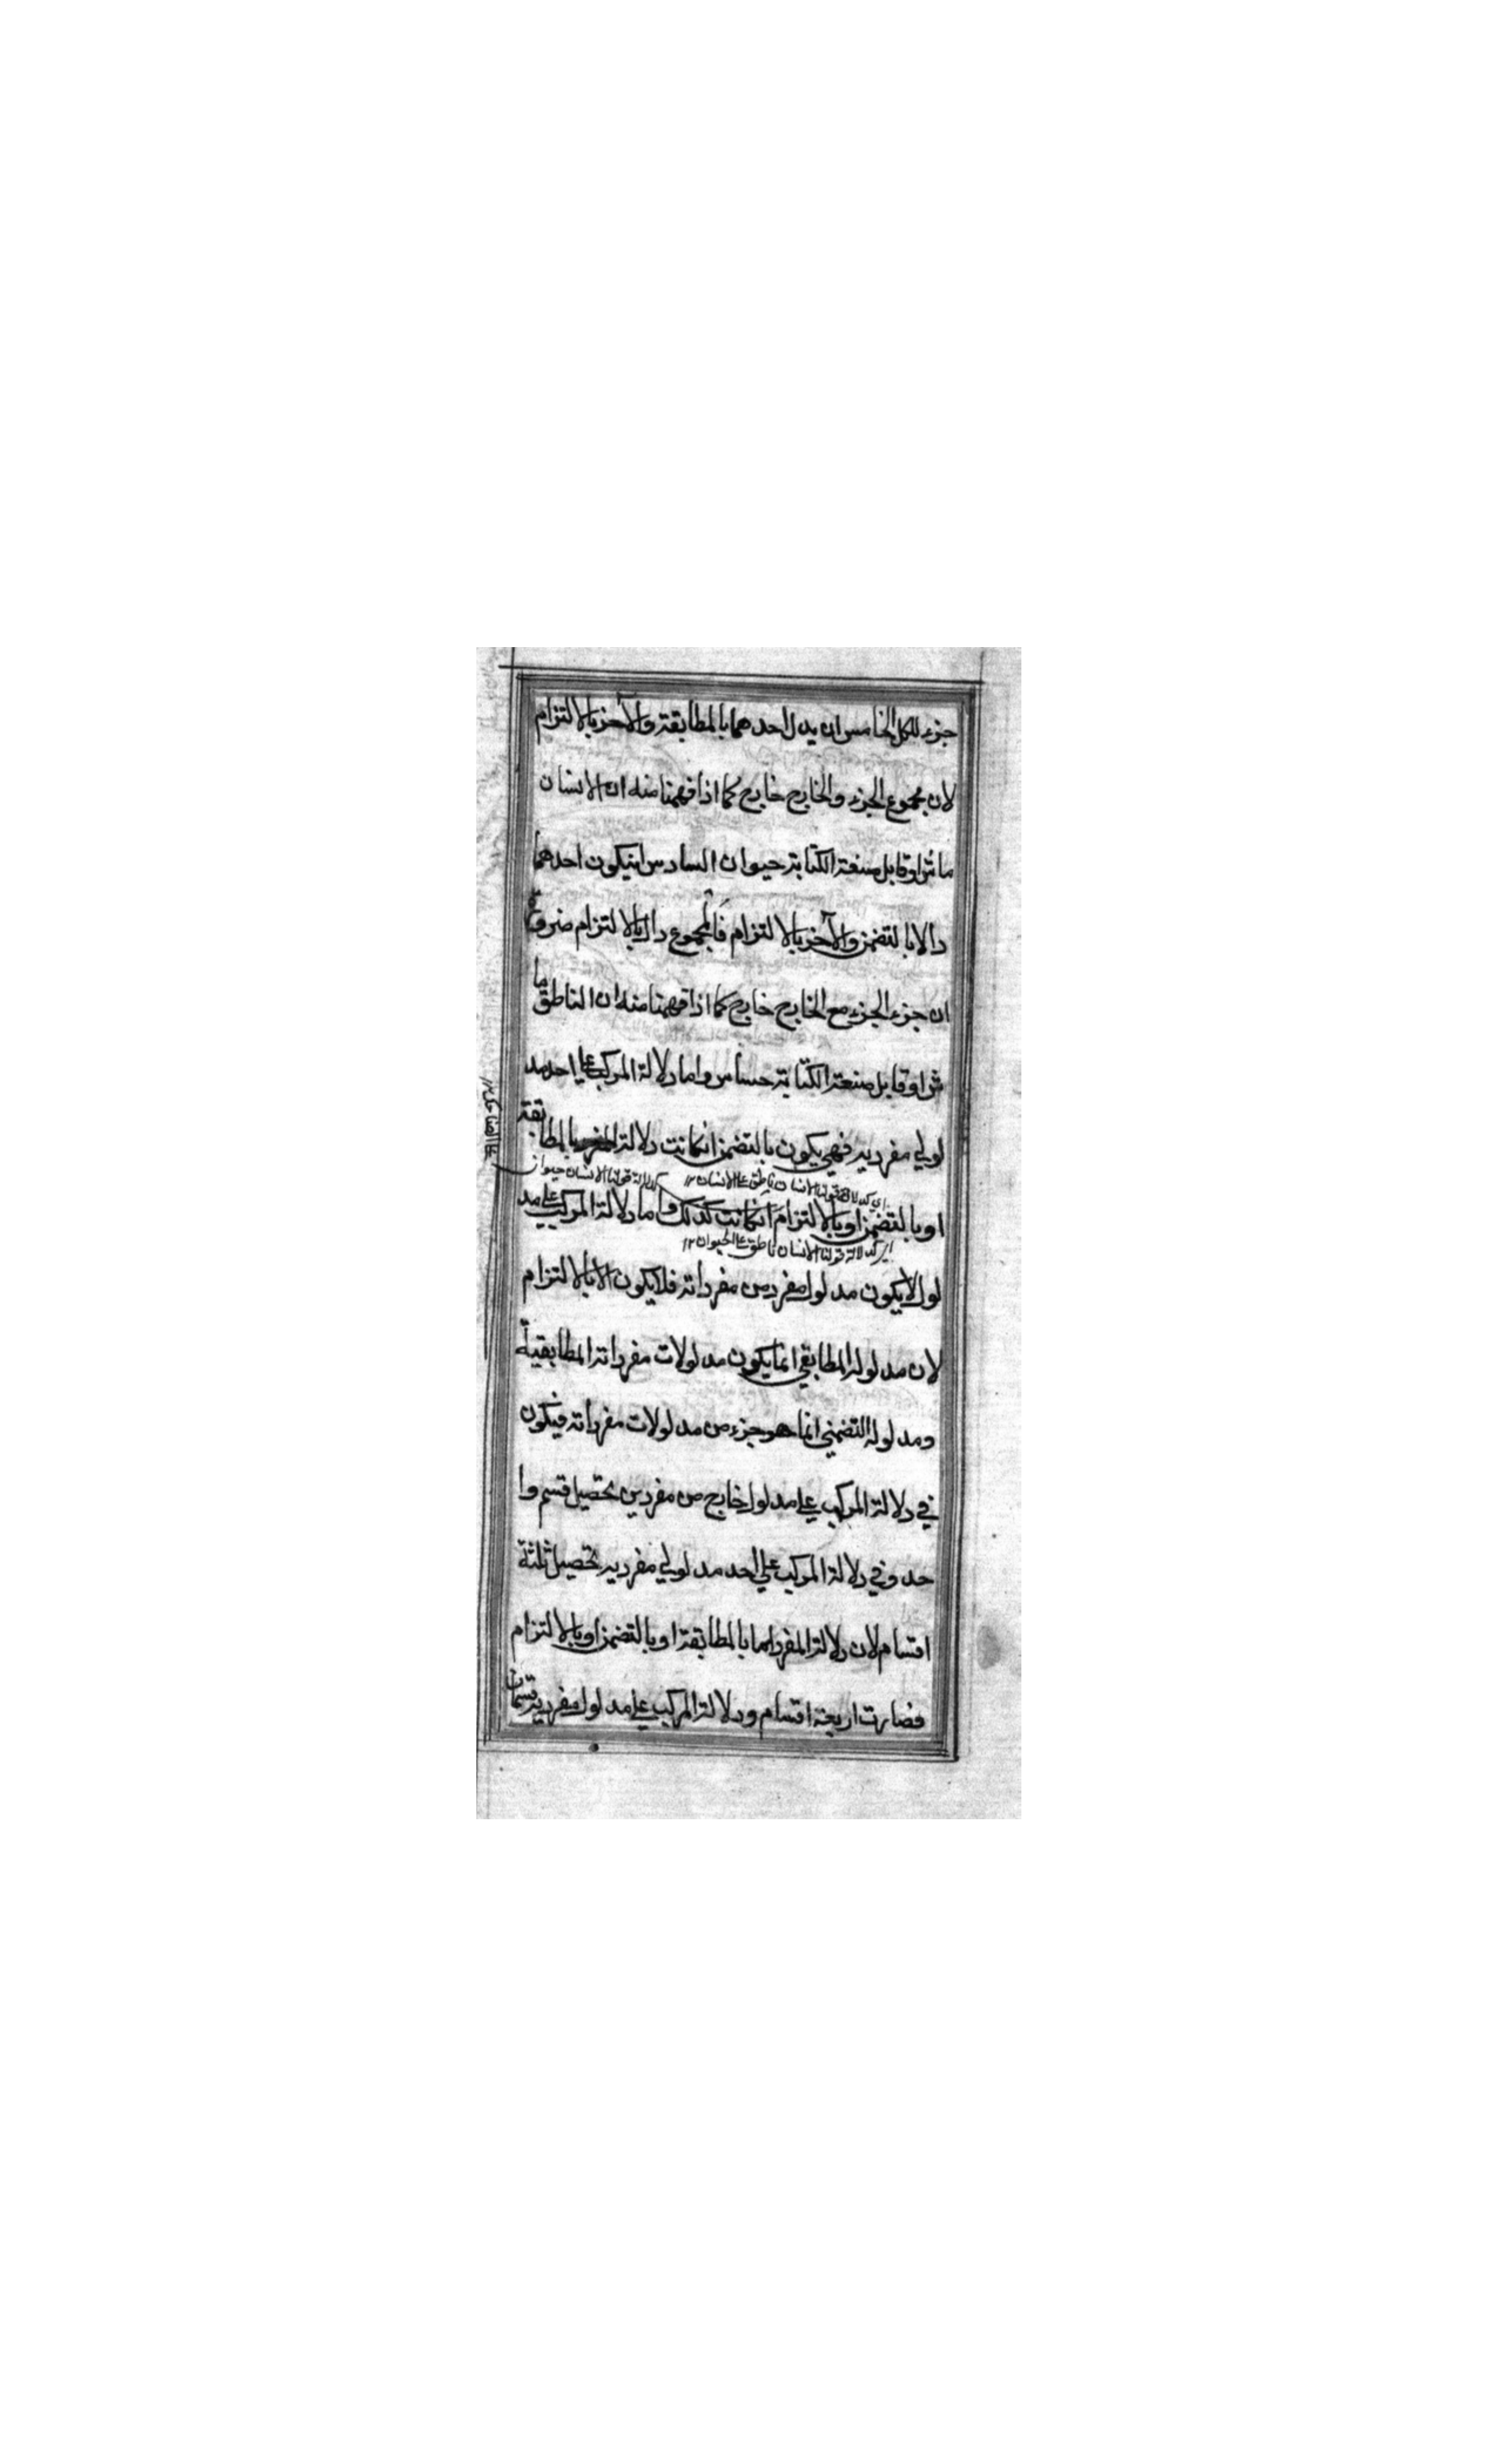 جزء للكل الخامس ان يدل احدهما بالمطابقة والآخر بالالتزام
لان مجموع الجزء والخارج خارج كما اذا فهمنا منه ان الانسان
ماش او قابل صنعة الكتابة حيوان السادس انيكون احدهما
دالا بالتضمن والآخر بالالتزام فالمجموع دال بالالتزام ضرورة
ان جزء الجزء مع الخارج خارج كما اذا فهمنا منه ان الناطق ما
ش او قابل صنعة الكتابة حساس واما دلالة المركب علي احد مد
لولي مفرديه فهي يكون بالتضمن انكانت دلالة المفرد بالمطابقة
اي كدلالة قولنا الانسان ناطق علي الانسان ١٢ كدلالة قولنا الانسان حيوان
او بالتضمن او بالالتزام انكانت كذلك واما دلالة المركب علي مد
اي كدلالة قولنا الانسان ناطق علي الحيوان ١٢
لول لايكون مدلول مفرد من مفرداته فلايكون الا بالالتزام
لان مدلوله المطابقي انما يكون مدلولات مفرداته المطابقية
ومدلوله التضمني انما هو جزء من مدلولات مفرداته فيكون
في دلالة المركب علي مدلول خارج من مفردين تحصيل قسم وا
حد وفي دلالة المركب علي احد مدلولي مفرديه تحصيل ثلثة
اقسام لان دلالة المفرد اما بالمطابقة او بالتضمن او بالالتزام
فصارت اربعة اقسام ودلالة المركب علي مدلول مفرديه قسمان